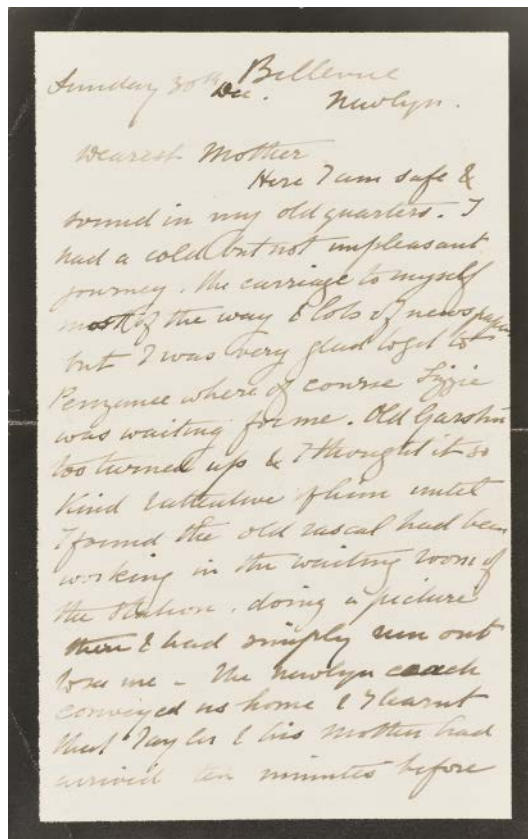 Sunday 30th Dec. Bellevue
Newlyn.
Dearest Mother
Here I am safe &
sound in my old quarters. I
had a cold but not unpleasant
journey. The carriage to myself
most of the way & lots of newspapers
but I was very glad to get to
Penzance where of course Lizzie
was waiting for me. Old Garstin
too turned up & I thought it so
kind & attentive of him until
I found the old rascal had been
working in the waiting room of
the station. doing a picture
there & had simply run out
to see me – The Newlyn coach
conveyed us home & I learnt
that Tayler & his mother had
arrived ten minutes before